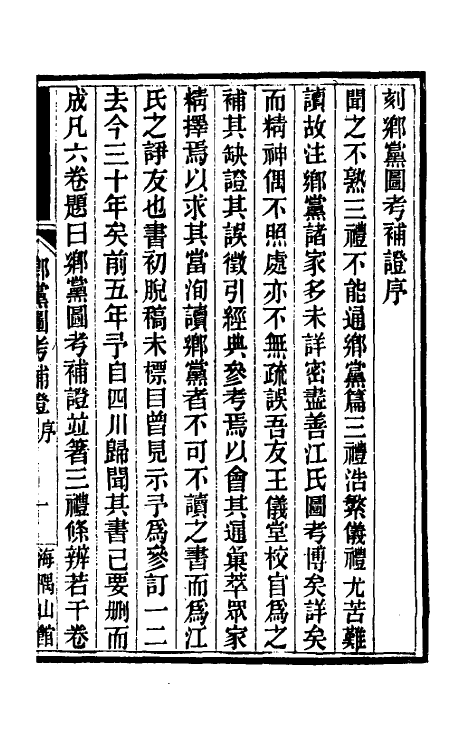 刻鄉黨圖考補證序
聞之不熟三禮不能通鄉黨篇三禮浩繁儀禮尤苦難
讀故注鄉黨諸家多未詳密盡善江氏圖考博矣詳矣
而精神偶不照處亦不無疏誤吾友王儀堂校官爲之
補其缺證其誤徵引經典參考焉以會其通彙萃眾家
精擇焉以求其當洵讀鄉黨者不可不讀之書而爲江
氏之諍友也書初脫稿未標目曾見示予爲參訂一二
去今三十年矣前五年予自四川歸聞其書已要刪而
成凡六卷題曰鄉黨圖考補證並著三禮條辨若干卷
鄉黨圖考補證 序 一 海隅山館